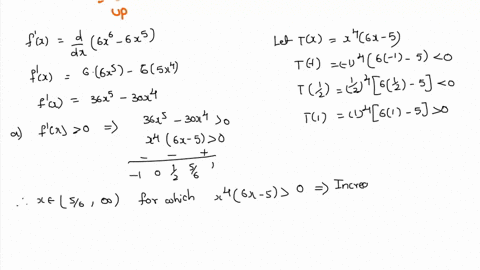 up
f'(x) = d/dx (6x⁶ - 6x⁵)
f'(x) = 6(6x⁵) - 6(5x⁴)
f'(x) = 36x⁵ - 30x⁴
a) f'(x) > 0 ⇒ 36x⁵ - 30x⁴ > 0
x⁴(6x-5) > 0
- - +
-1 0 1/2 5/6 1
∴ x ∈ [5/6, ∞) for which x⁴(6x-5) > 0 ⇒ Increa
Let T(x) = x⁴(6x-5)
T(-1) = (-1)⁴(6(-1) - 5) < 0
T(1/2) = (1/2)⁴[6(1/2) - 5] < 0
T(1) = (1)⁴[6(1) - 5] > 0